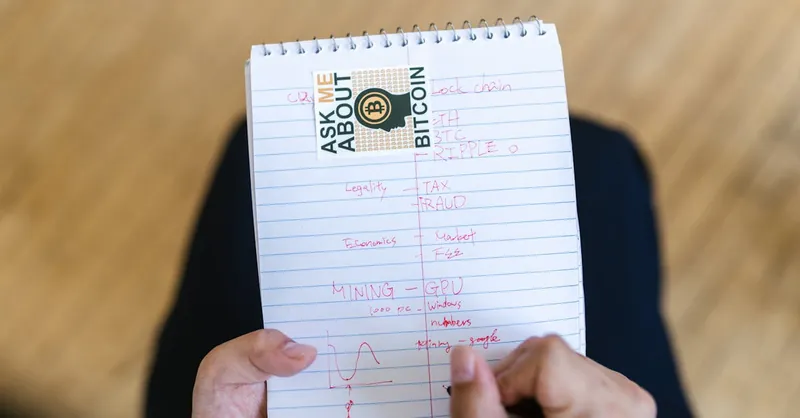 ASK ME
ABOUT
BITCOIN
lock chain
TH
BTC
RIPPLE
Legality - TAX
FRAUD
Economics - Market
Fee
MINING - GPU
1000 - Windows
numbers